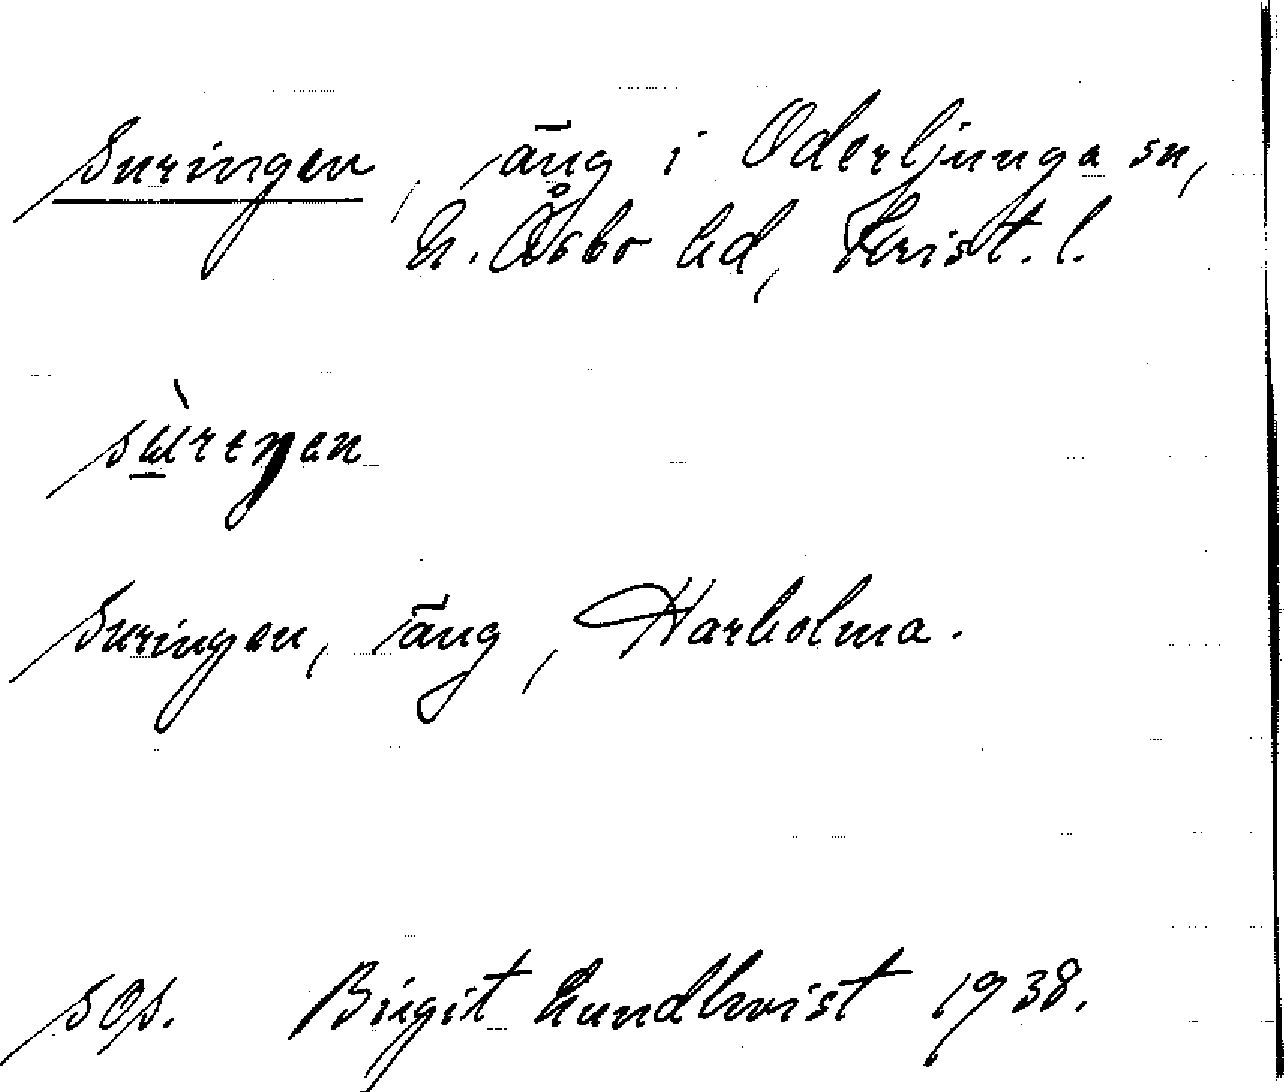 Suringen, äng i Oderljunga sn,
N. Åsbo hd, Krist. l.
sùreŋen
Suringen, äng, Harholma.
Birgit Lundkvist 1938.